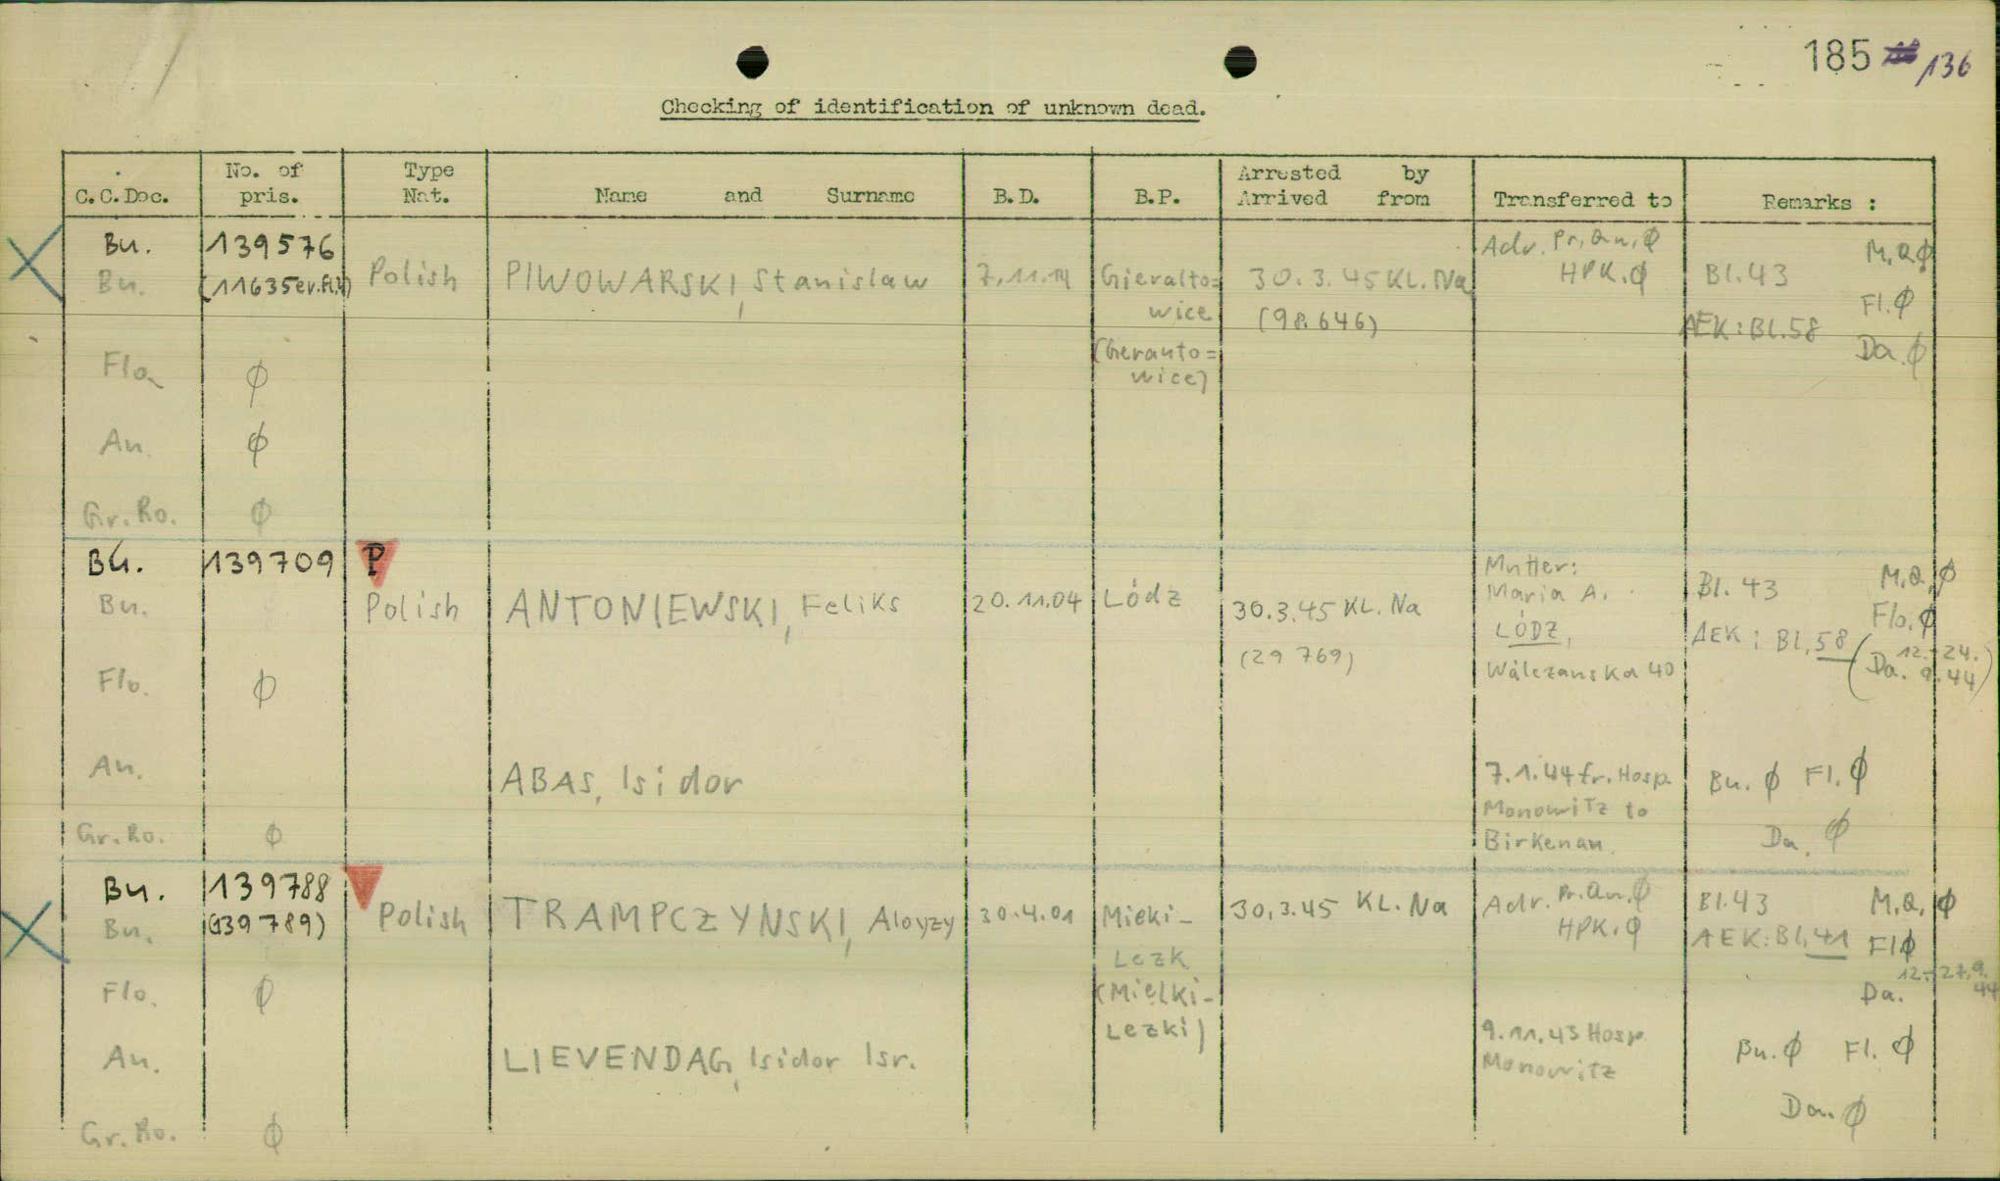 185 136
Checking of identification of unknown dead.
C.C.Doc. No. of pris. Type Nat. Name and Surname B.D. B.P. Arrested by Arrived from Transferred to Remarks :
Bu. 139576 Adv. Pr, Qu, Ø M.Q Ø
Bu. Polish PIWOWARSKI, Stanislaw 7.11.14 Gieralto= 30.3.45 KL. Na HPK. Ø Bl. 43
wice (98.646) Fl. Ø
AEK: Bl. 58
(Gerauto= Da. Ø
wice)
Flo. Ø
An. Ø
Gr. Ro. Ø
Bu. 139709 P Mutter: Bl. 43 M.Q. Ø
Bu. Polish ANTONIEWSKI, Feliks 20.11.04 Lódz 30.3.45 KL. Na Maria A. Flo. Ø
LÓDZ, AEK: Bl. 58
(29 769) Wálczanska 40 (Da. 12.-24. 9.44)
Flo. Ø
An. ABAS, Isidor 7.1.44 fr. Hosp. Bu. Ø Fl. Ø
Monowitz to
Gr. Ro. Ø Birkenau. Da. Ø
Bu. 139788 Adr. Pr. Qu. Ø Bl. 43 M.Q. Ø
Bu. (139789) Polish TRAMPCZYNSKI, Aloyzy 30.4.01 Mieki- 30.3.45 KL. Na HPK. Ø
Lezk AEK: Bl. 41 Fl Ø
Flo. Ø (Mielki- Da. 12.-27.9.44
Lezki)
An. LIEVENDAG, Isidor Isr. 9.11.43 Hosp. Bu. Ø Fl. Ø
Monowitz
Da. Ø
Gr. Ro. Ø